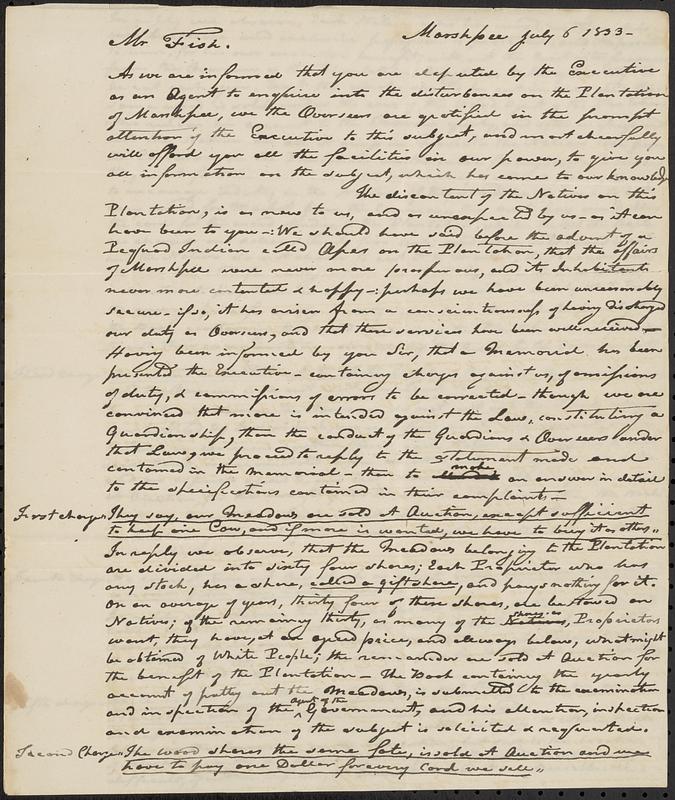 Marshpee July 6 1833-
Mr Fish.
As we are informed that you are deputed by the Executive
as an Agent to enquire into the disturbances on the Plantation
of Marshpee, we the Overseers are gratified in the prompt
attention of the Executive to this subject, and most chearfully
will afford you all the facilities in our power, to give you
all information on the subject, which has come to our knowledge
The discontent of the Natives on this
Plantation, is as new to us, and as unexpected by us - as it can
have been to you -: We should have said before the advent of a
Pequod Indian called Apes on the Plantation, that the affairs
of Marshpee were never more prosperous, and its Inhabitants
never more contented & happy -: perhaps we have been unreasonably
secure - if so, it has arisen from a conscientiousness of having discharged
our duty as Overseers, and that those services have been well received -
Having been informed by you Sir, that a Memorial has been
presented the Executive - containing charges against us, of omissions
of duty, & commissions of errors to be corrected - though we are
convinced that more is intended against the Law, constituting a
Guardianship, than the conduct of the Guardians & Overseers under
that Law, we proceed to reply to the statement made and
contained in the Memorial - then to make an answer in detail
to the specifications contained in their complaints -
First charge " They say, our Meadows are sold at Auction, except sufficient
to keep one Cow, and if more is wanted, we have to buy it as others "
In reply we observe, that the Meadows belonging to the Plantation
are divided into sixty four shares; Each Proprietor who has
any stock, has a share, called a gift share, and pays nothing for it.
On an average of years, thirty four of these shares, are bestowed on
Natives; of the remaining thirty, as many of the shares as Natives, Proprietors
want, they have, at an agreed price, and always below, what might
be obtained of White People; the remainder are sold at Auction for
the benefit of the Plantation - The Book containing the yearly
account of putting out the Meadows, is submitted to the examination
and inspection of the Agent of the Government, and his attention, inspection
and examination of the subject is solicited & requested.
Second Charge " The wood shares the same fate, is sold at Auction and we
have to pay one Dollar for every Cord we sell "